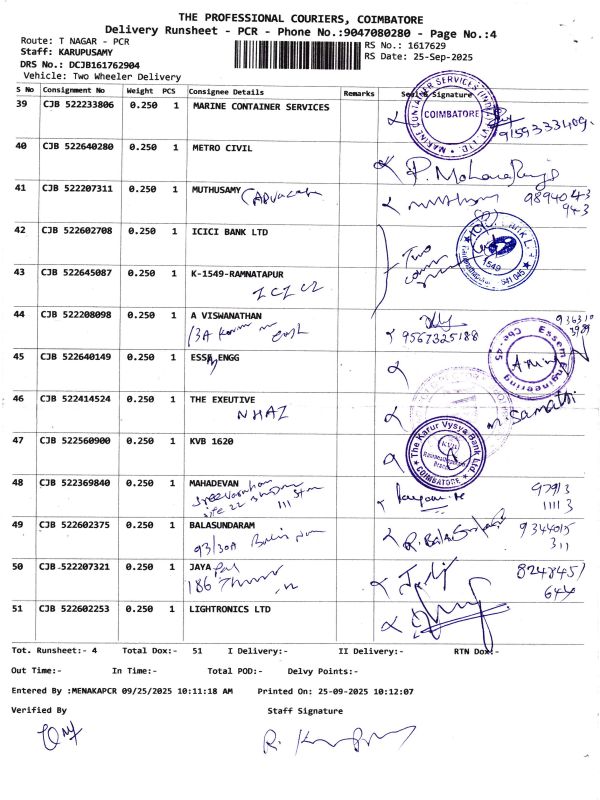 THE PROFESSIONAL COURIERS, COIMBATORE
Delivery Runsheet - PCR - Phone No.:9047080280 - Page No.:4
Route: T NAGAR - PCR
Staff: KARUPUSAMY
DRS No.: DCJB161762904
Vehicle: Two Wheeler Delivery
RS No.: 1617629
RS Date: 25-Sep-2025
S No Consignment No Weight PCS Consignee Details Remarks Seal & Signature
39 CJB 522233806 0.250 1 MARINE CONTAINER SERVICES
MARINE CONTAINER SERVICES COIMBATORE
9159333409
40 CJB 522640280 0.250 1 METRO CIVIL
41 CJB 522207311 0.250 1 MUTHUSAMY
9894043
943
42 CJB 522602708 0.250 1 ICICI BANK LTD
Two
1549
641 045
43 CJB 522645087 0.250 1 K-1549-RAMNATAPUR
ICICI
44 CJB 522208098 0.250 1 A VISWANATHAN
9567325188
45 CJB 522640149 0.250 1 ESSA ENGG
Essem Engineering Cbe-45
46 CJB 522414524 0.250 1 THE EXEUTIVE
NHAI
47 CJB 522560900 0.250 1 KVB 1620
The Karur Vysya Bank Ltd.
KVB
COIMBATORE
48 CJB 522369840 0.250 1 MAHADEVAN
97913
11113
49 CJB 522602375 0.250 1 BALASUNDARAM
93/30A
9344015
311
50 CJB 522207321 0.250 1 JAYA
186
8248451
644
51 CJB 522602253 0.250 1 LIGHTRONICS LTD
Tot. Runsheet:- 4 Total Dox:- 51 I Delivery:- II Delivery:- RTN Dox:-
Out Time:- In Time:- Total POD:- Delvy Points:-
Entered By :MENAKAPCR 09/25/2025 10:11:18 AM Printed On: 25-09-2025 10:12:07
Verified By Staff Signature